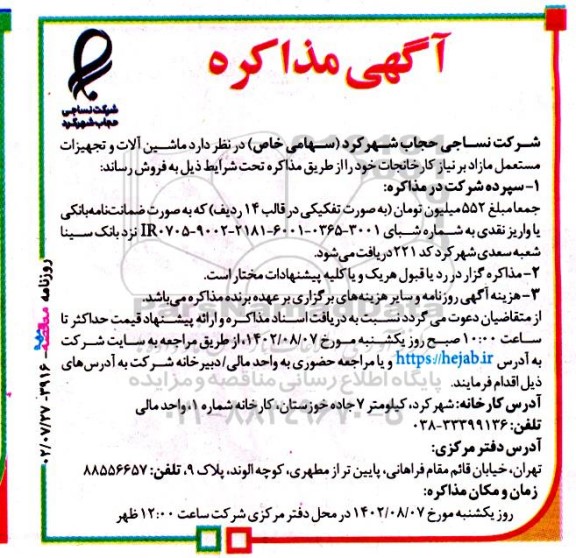 آگهی مذاکره
شرکت نساجی
حجاب شهرکرد
شرکت نساجی حجاب شهرکرد (سهامی خاص) در نظر دارد ماشین آلات و تجهیزات
مستعمل مازاد بر نیاز کارخانجات خود را از طریق مذاکره تحت شرایط ذیل به فروش رساند:
۱- سپرده شرکت در مذاکره:
جمعا مبلغ ۵۵۲ میلیون تومان (به صورت تفکیکی در قالب ۱۴ ردیف) که به صورت ضمانت‌نامه بانکی
یا واریز نقدی به شماره شبای IR۰۷۰۵-۹۰۰۲-۲۱۸۱-۶۰۰۱-۰۳۶۵-۳۰۰۱ نزد بانک سینا
شعبه سعدی شهرکرد کد ۲۲۱ دریافت می‌شود.
۲- مذاکره گزار در رد یا قبول هر یک و یا کلیه پیشنهادات مختار است.
۳- هزینه آگهی روزنامه و سایر هزینه‌های برگزاری بر عهده برنده مذاکره می‌باشد.
از متقاضیان دعوت می گردد نسبت به دریافت اسناد مذاکره و ارائه پیشنهاد قیمت حداکثر تا
ساعت ۱۰:۰۰ صبح روز یکشنبه مورخ ۱۴۰۲/۰۸/۰۷، از طریق مراجعه به سایت شرکت
به آدرس https://hejab.ir و یا مراجعه حضوری به واحد مالی/دبیرخانه شرکت به آدرس‌های
ذیل اقدام فرمایند.
آدرس کارخانه: شهرکرد، کیلومتر ۷ جاده خوزستان، کارخانه شماره ۱، واحد مالی
تلفن: ۳۳۳۹۹۱۳۶-۰۳۸
آدرس دفتر مرکزی:
تهران، خیابان قائم مقام فراهانی، پایین تر از مطهری، کوچه الوند، پلاک ۹، تلفن: ۸۸۵۵۶۶۵۷
زمان و مکان مذاکره:
روز یکشنبه مورخ ۱۴۰۲/۰۸/۰۷ در محل دفتر مرکزی شرکت ساعت ۱۲:۰۰ ظهر
روزنامه مناقصه - ۳۹۱۶ - ۰۲/۰۷/۲۷
پایگاه اطلاع رسانی مناقصه و مزایده